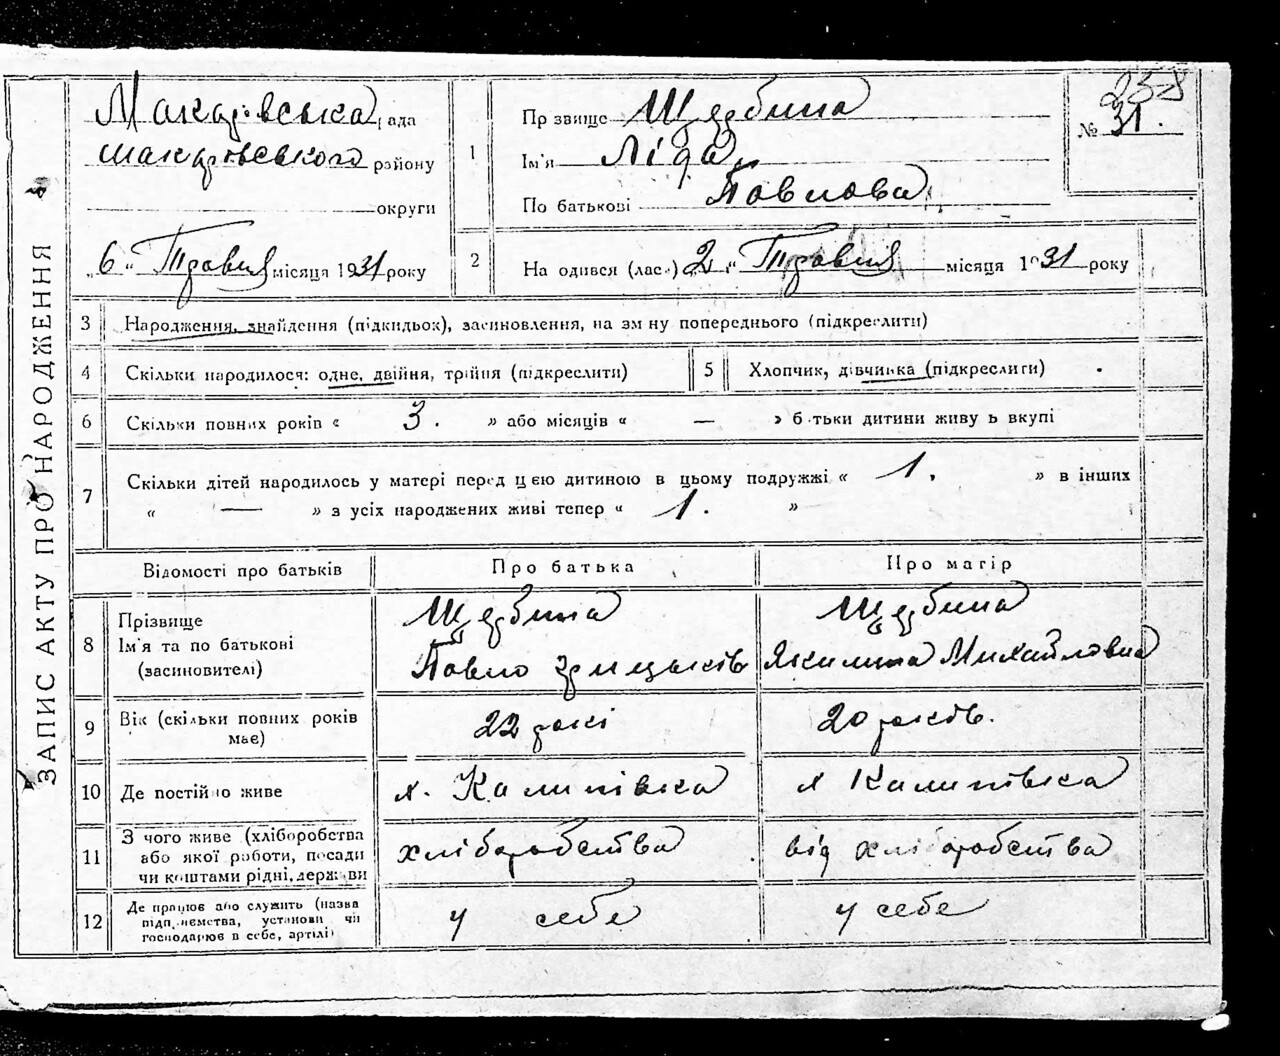 ЗАПИС АКТУ ПРО НАРОДЖЕННЯ
Макарівська рада
Макарівського району
округи
„6“ Травня місяця 1931 року
1
Прізвище Щербина
Ім'я Ліда
По батькові Павлова
238
№ 31.
2
На одився (лась) 2 „ Травня місяця 1931 року
3 Народження, знайдення (підкидьок), засиновлення, на зм ну попереднього (підкреслити)
4 Скільки народилося: одне, двійня, трійня (підкреслити)
5 Хлопчик, дівчинка (підкреслити)
6 Скільки повних років « 3. » або місяців « — » б тьки дитини живу ь вкупі
7 Скільки дітей народилось у матері перед цією дитиною в цьому подружжі « 1. » в інших
« — » з усіх народжених живі тепер « 1. »
Відомості про батьків
Про батька
Про матір
8 Прізвище
Ім'я та по батькові
(засиновителі)
Щербина
Павло Грицьків
Щербина
Якилина Михайловна
9 Вік (скільки повних років
має)
22 рокі
20 років.
10 Де постійно живе
х. Калинівка
х Калинівка
11 З чого живе (хліборобства
або якої роботи, посади
чи коштами рідні, держави
хліборобства
від хліборобства
12 Де працює або служить (назва
підп иємства, установи чи
господарює в себе, артілі)
у себе
у себе